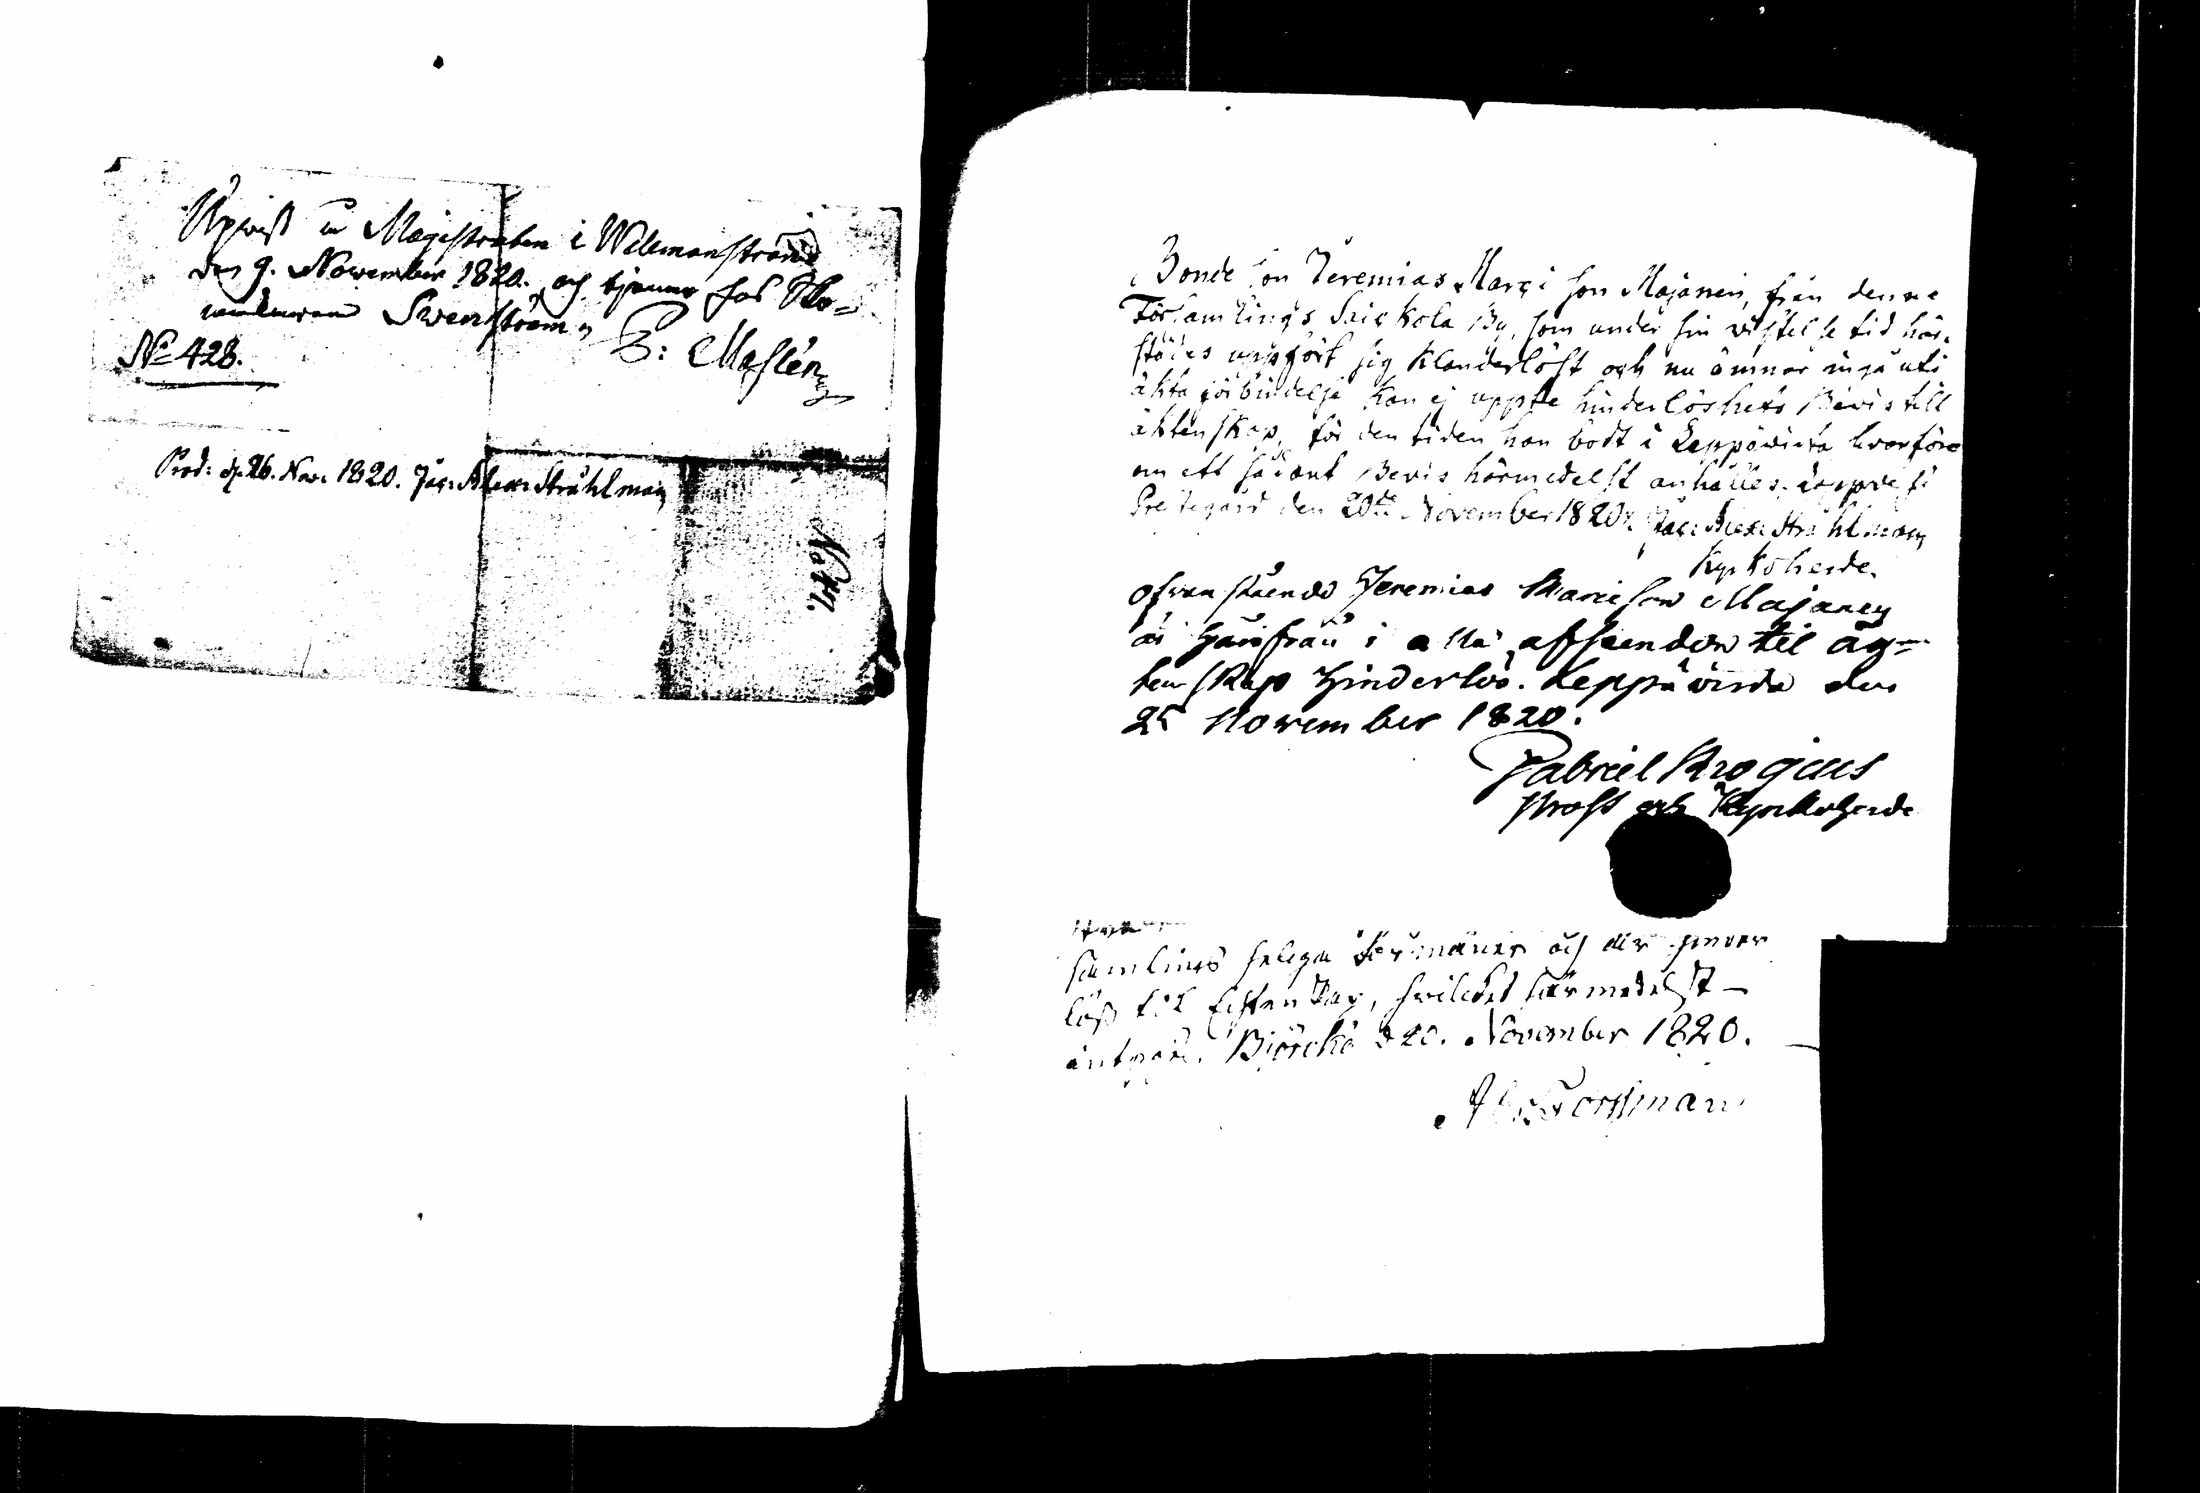 Upvist i Magistraten i Wilmanstrand
den 9. November 1820. och tjenar hos Sko-
Swenström,
E: Maslén
No 428.
Prod: d. 26. Nov. 1820. Jac. Alex. Stråhlman
No 47.
Bonde Son Jeremias Marci son Majanen, från denne
Församlings By, som under sin vistelse tid här-
städes uppfört sig klanderlöst och nu ämnar ingå uti
äkta förbindelse kan ej uppte hinderlöshets Bevis till
äktenskap, för den tiden han bodt i Leppäwirta hvarföre
om ett sådant Bevis härmedelst anhålles.
Prestegård den 20de November 1820. Jac: Alex: Stråhlman
Kyrkoherde.
Ofvanstående Jeremias Marcison Majanen
är härifrån i alla afseenden til äg-
tenskap hinderlös. Leppäwirda den
25 November 1820.
Gabriel Krogius
Prost och Kyrkoherde
samlings helga och är
lös til Ecktenskap, hvilcket härmedelst
Biörckö d 20. November 1820.
Forssman